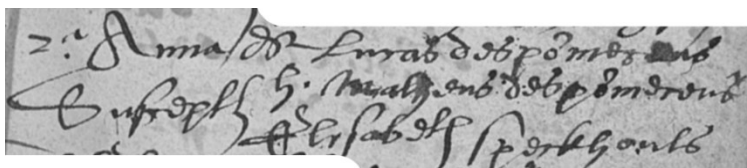 2.a Anna de Lucas despomereaus
Suscepth h. Matheus despomereus
Elisabeth speckhouts